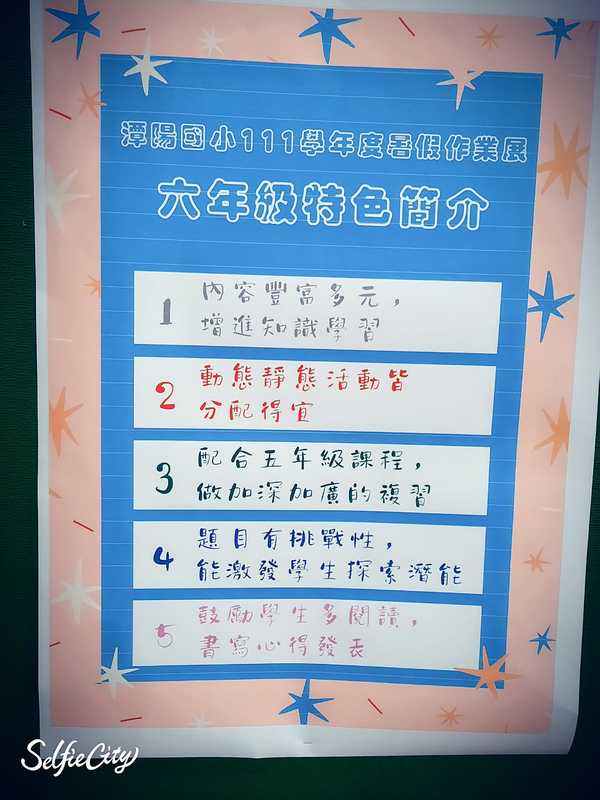 潭陽國小111學年度暑假作業展
六年級特色簡介
1
內容豐富多元，
增進知識學習
2
動態靜態活動皆
分配得宜
3
配合五年級課程，
做加深加廣的複習
4
題目有挑戰性，
能激發學生探索潛能
5
鼓勵學生多閱讀，
書寫心得發表
SelfieCity